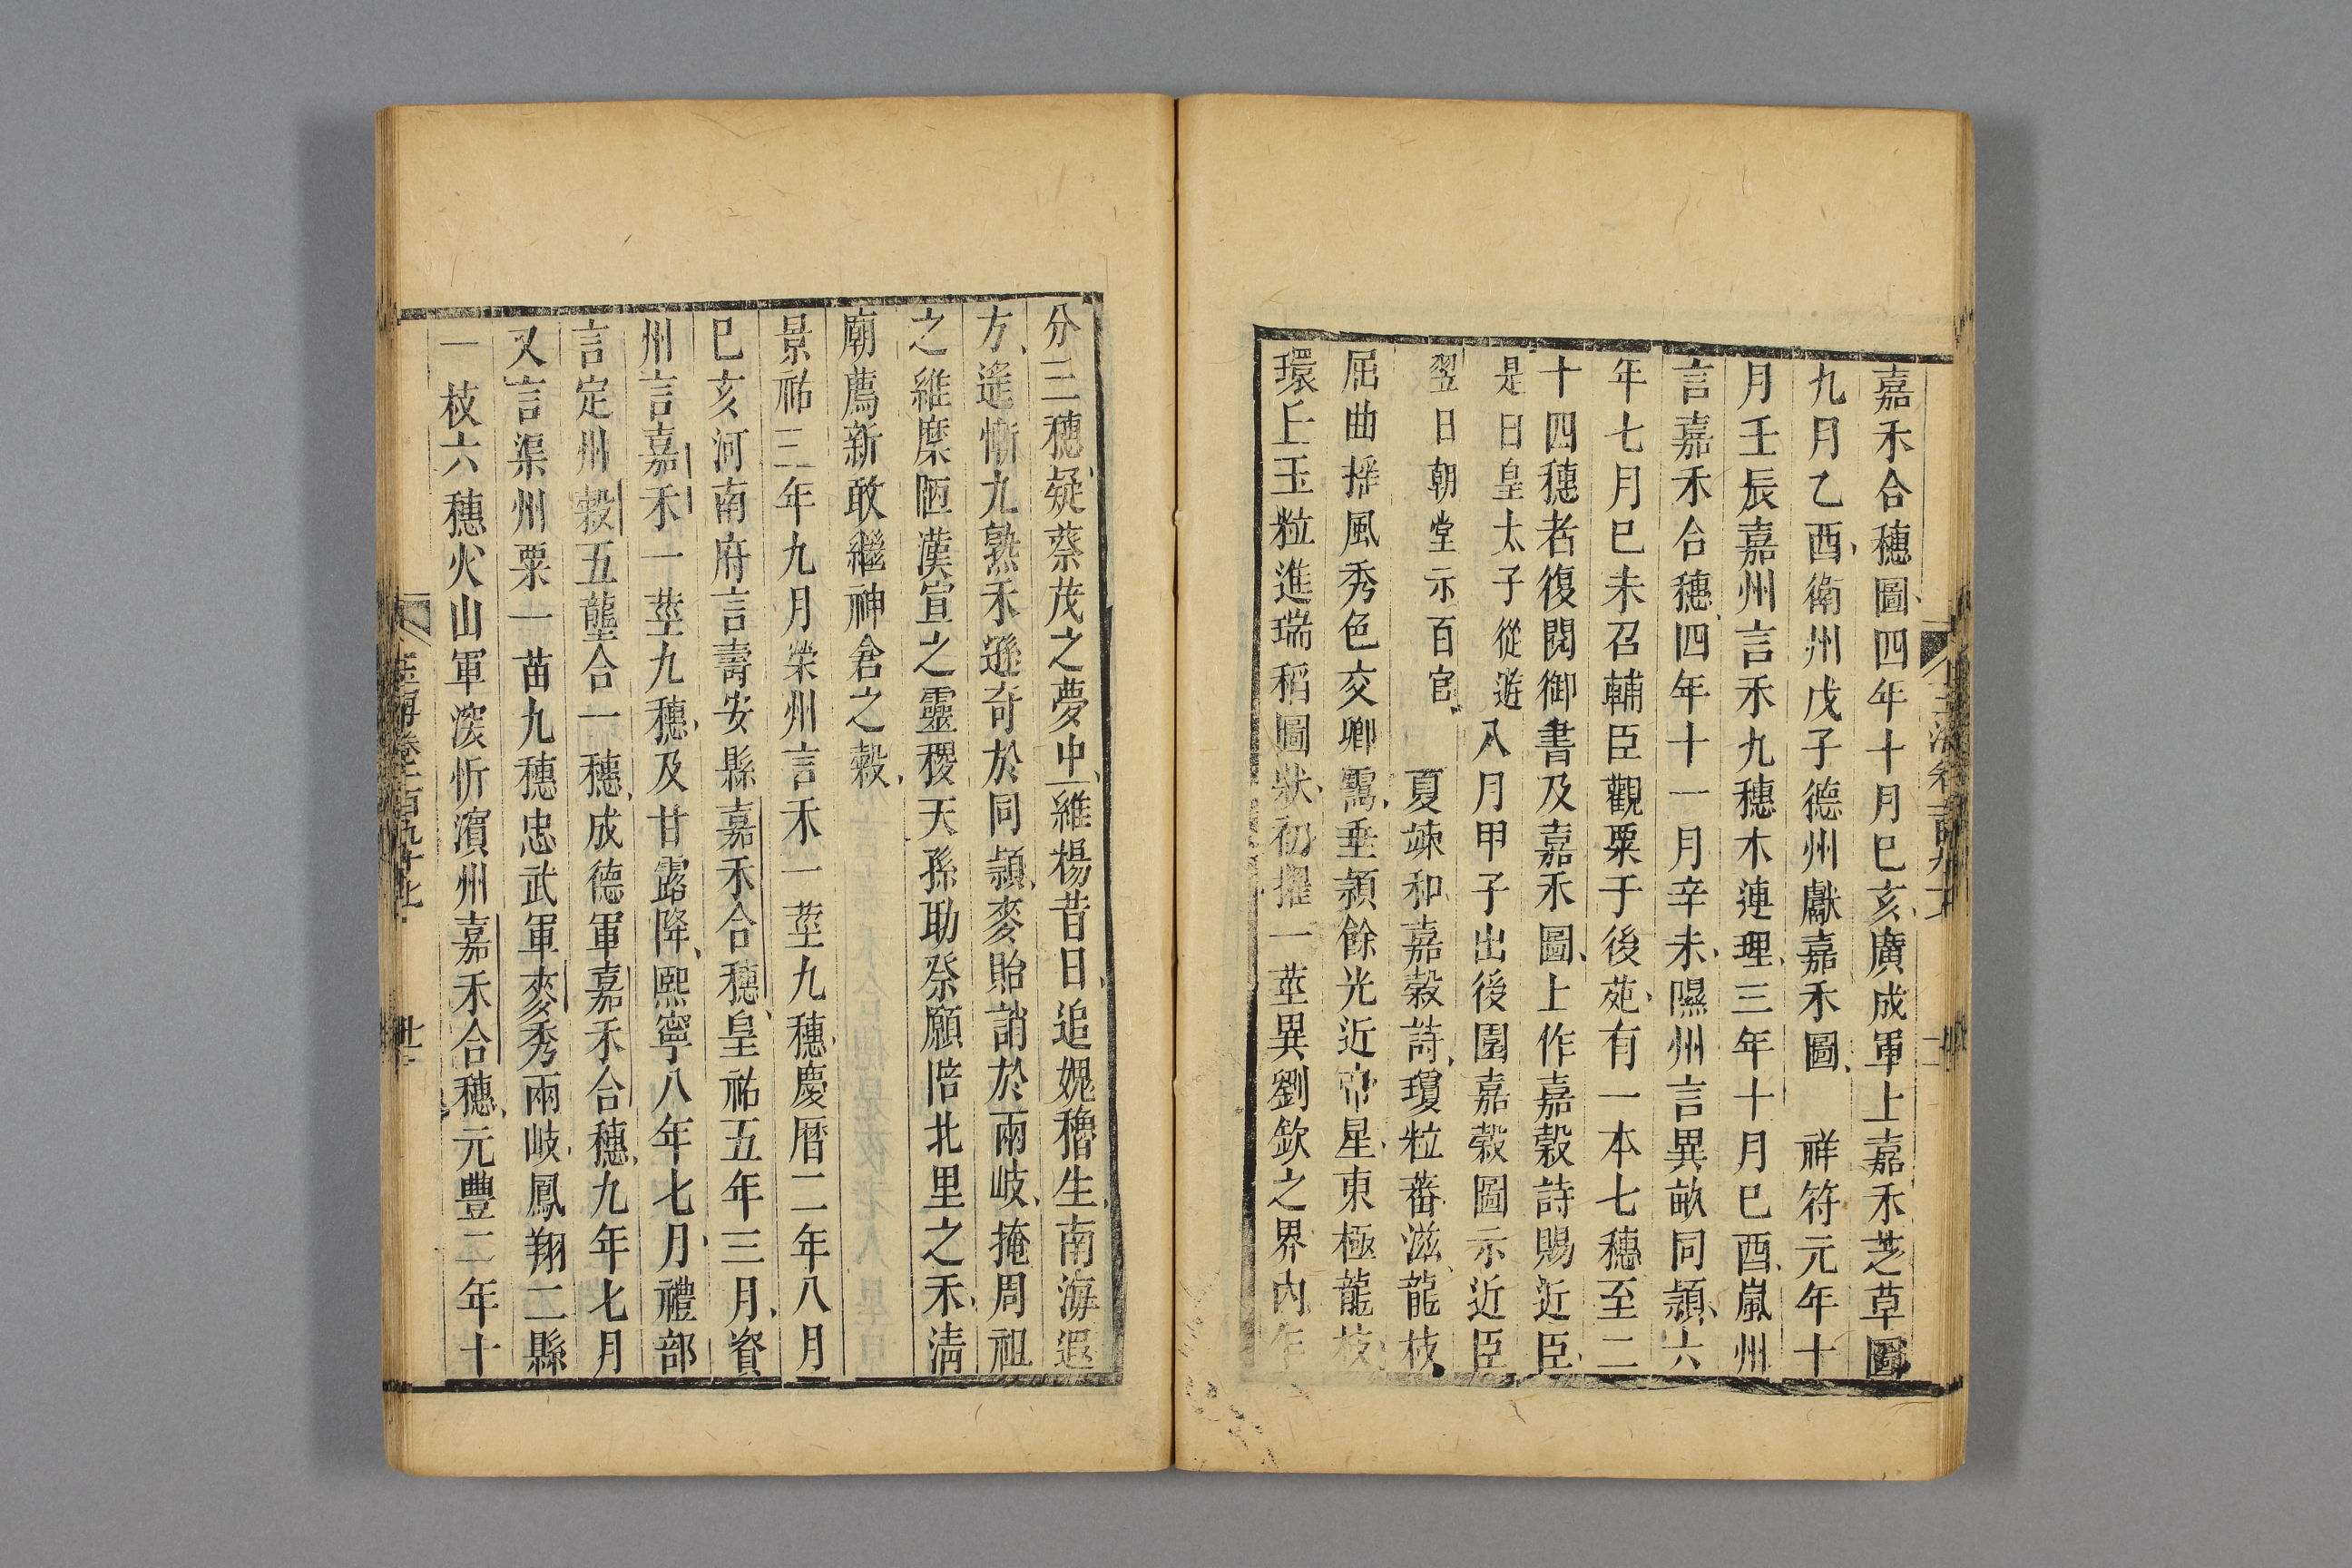 嘉禾合穗圖四年十月巳亥廣成軍上嘉禾芝草圖
九月乙酉衛州戊子德州獻嘉禾圖　祥符元年十
月壬辰嘉州言禾九穗木連理三年十月巳酉嵐州
言嘉禾合穗四年十一月辛未隰州言異畝同穎六
年七月巳未召輔臣觀粟于後苑有一本七穗至二
十四穗者復閱御書及嘉禾圖上作嘉穀詩賜近臣
是日皇太子從遊八月甲子出後園嘉穀圖示近臣
翌日朝堂示百官　夏竦和嘉穀詩瓊粒蕃滋龍枝
屈曲摇風秀色交卿靄垂穎餘光近帝星東極龍枝
環丘玉粒進瑞稻圖狀初擢一莖異劉欽之界內年
分三穗疑蔡茂之夢中維楊昔日追媿穭生南海遐
方遙慚九熟禾遜奇於同穎麥貽誚於兩岐掩周祖
之維穈陋漢宣之靈稷天孫助祭願陪北里之禾清
廟薦新敢繼神倉之穀
景祐三年九月榮州言禾一莖九穗慶曆二年八月
巳亥河南府言壽安縣嘉禾合穗皇祐五年三月資
州言嘉禾一莖九穗及甘露降熙寧八年七月禮部
言定州穀五壟合一穗成德軍嘉禾合穗九年七月
又言渠州粟一苗九穗忠武軍麥秀兩岐鳳翔二縣
一枝六穗火山軍深忻濱州嘉禾合穗元豐二年十
玉海卷一百九十七